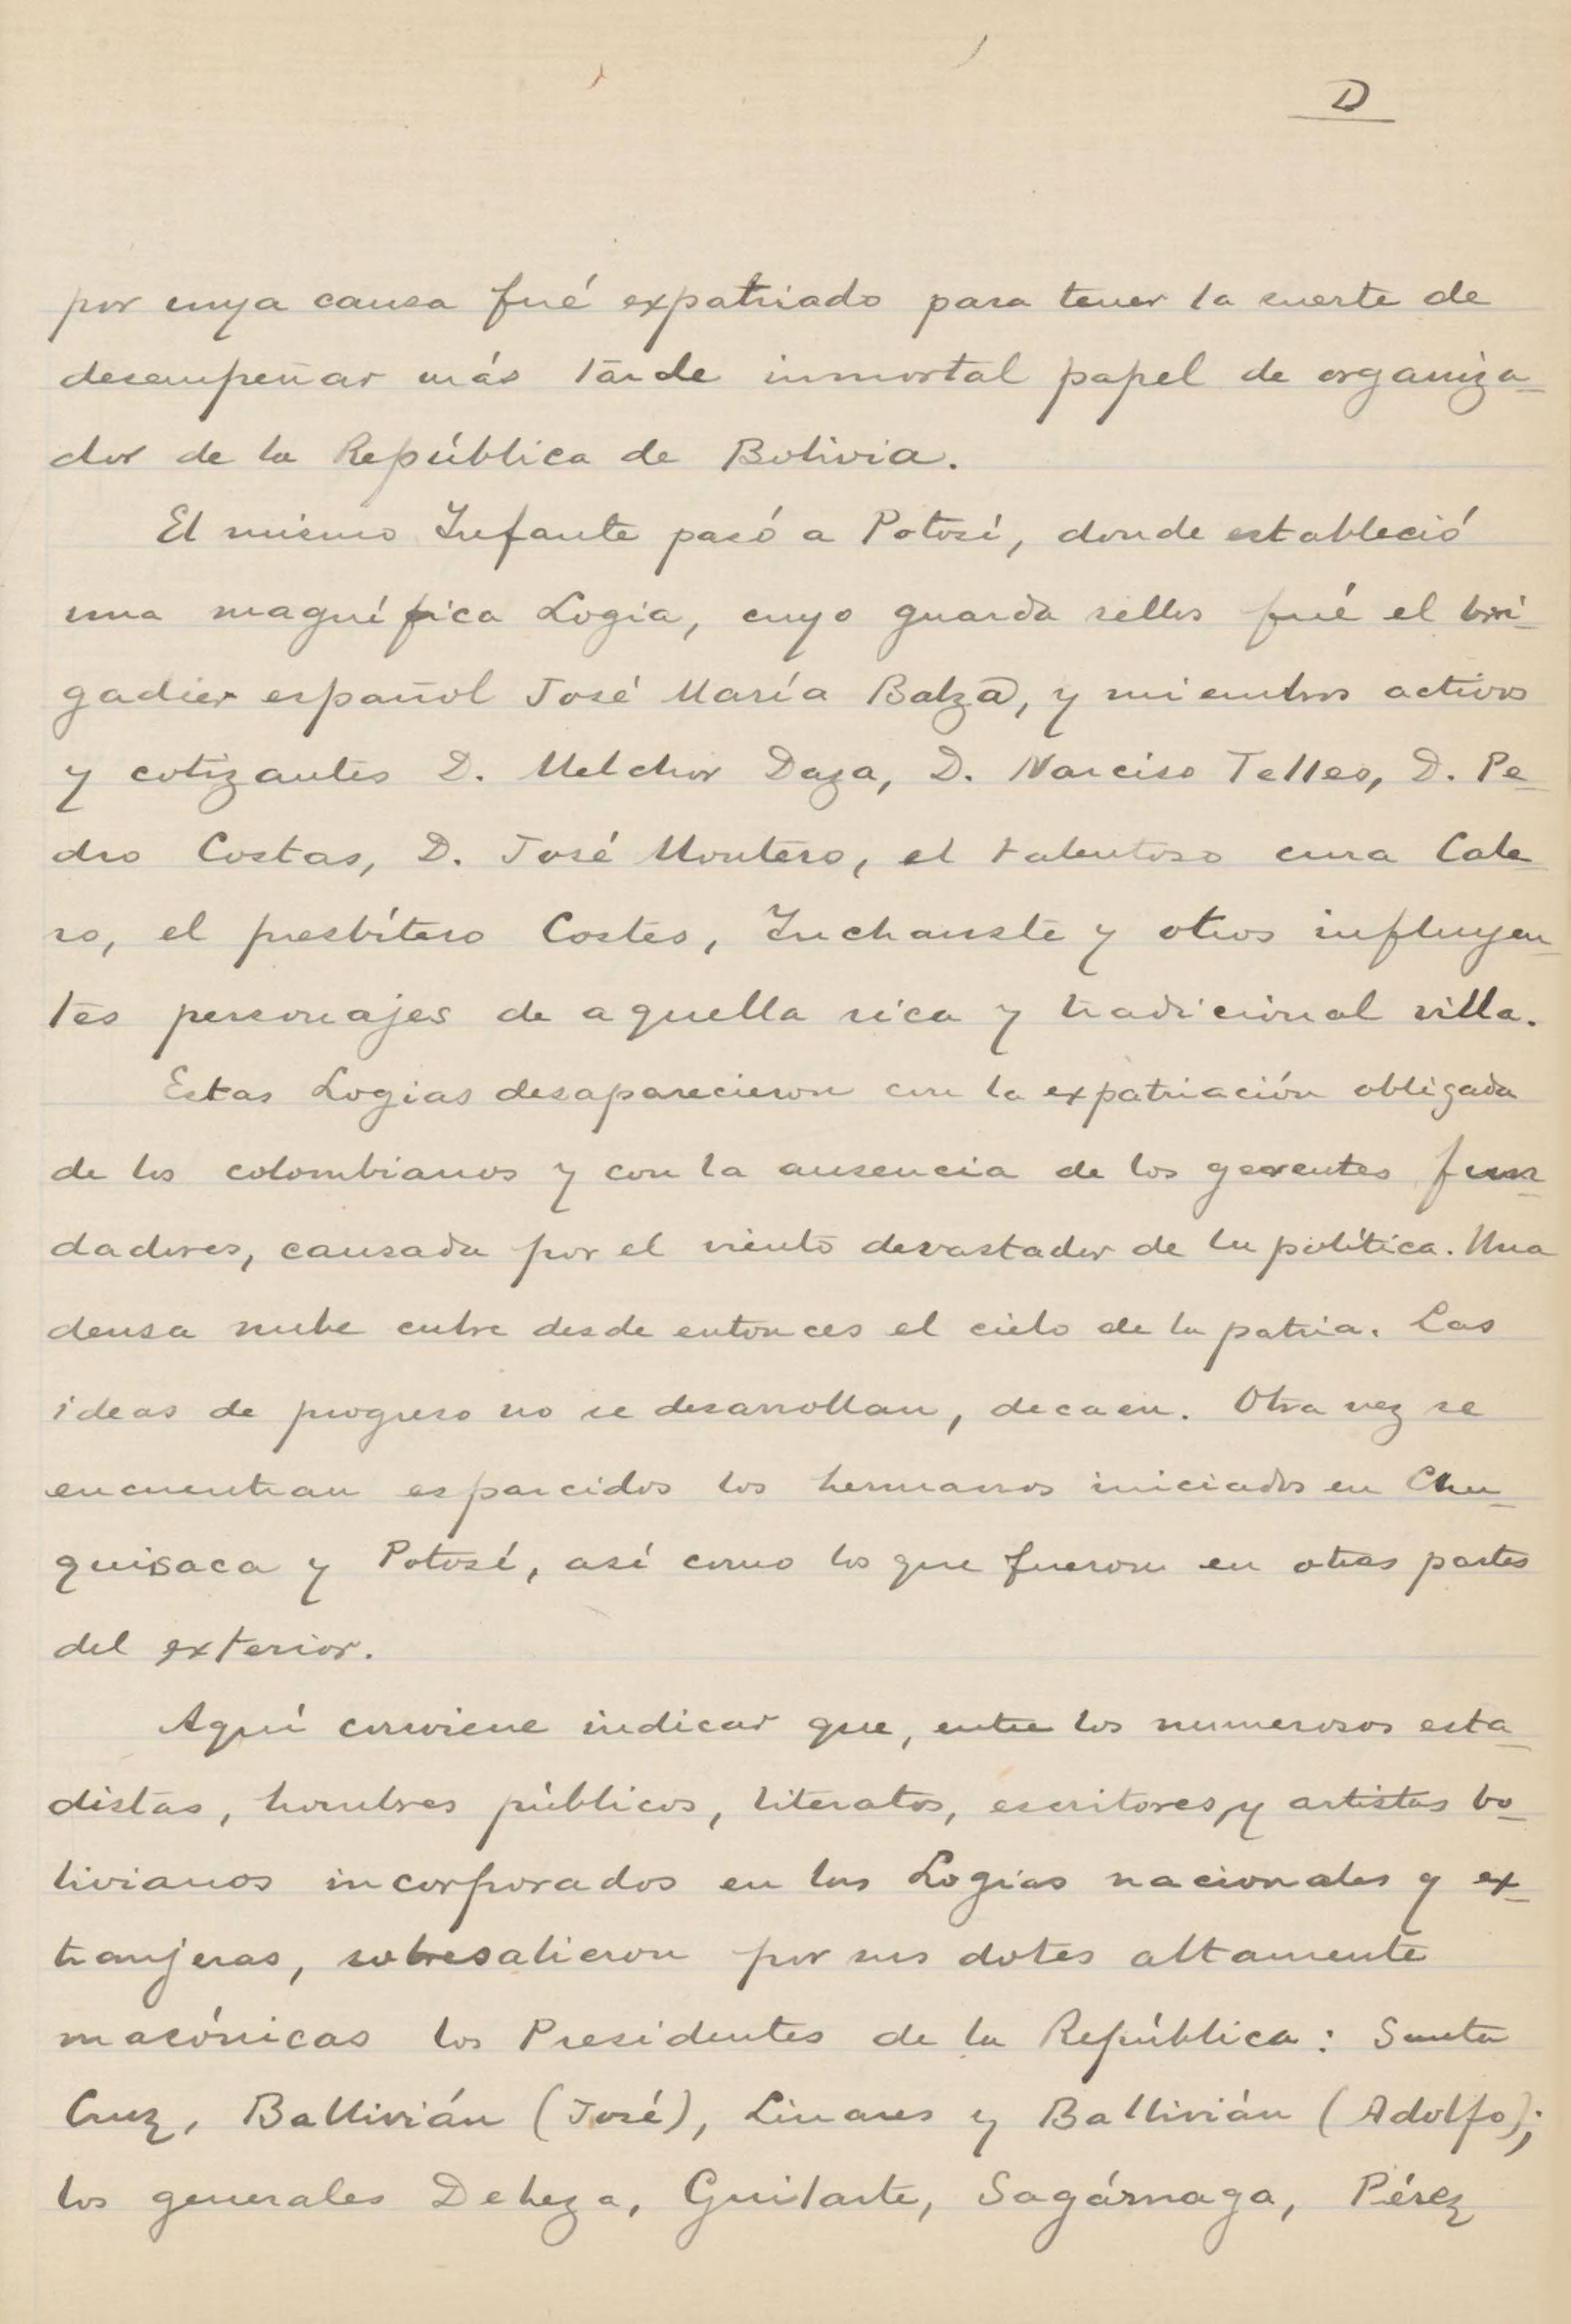 D
por cuya causa fué expatriado para tener la suerte de
desempeñar más tarde inmortal papel de organiza-
dor de la República de Bolivia.
El mismo Infante pasó a Potosí, donde estableció
una magnífica Logia, cuyo guarda sellos fué el bri-
gadier español José María Balza, y miembros activos
y cotizantes D. Melchor Daza, D. Narciso Telles, D. Pe-
dro Costas, D. José Montero, el talentoso cura Cale-
ro, el presbítero Costes, Inchauste y otros influyen-
tes personajes de aquella rica y tradicional villa.
Estas Logias desaparecieron con la expatriación obligada
de los colombianos y con la ausencia de los gerentes fun-
dadores, causada por el viento devastador de la política. Una
densa nube cubre desde entonces el cielo de la patria. Las
ideas de progreso no se desarrollan, decaen. Otra vez se
encuentran esparcidos los hermanos iniciados en Chu-
quisaca y Potosí, así como los que fueron en otras partes
del exterior.
Aquí conviene indicar que, entre los numerosos esta-
distas, hombres públicos, literatos, escritores, y artistas bo-
livianos incorporados en las Logias nacionales y ex-
tranjeras, sobresalieron por sus dotes altamente
masónicas los Presidentes de la República: Santa
Cruz, Ballivián (José), Linares y Ballivián (Adolfo);
los generales Deheza, Guilarte, Sagárnaga, Pérez